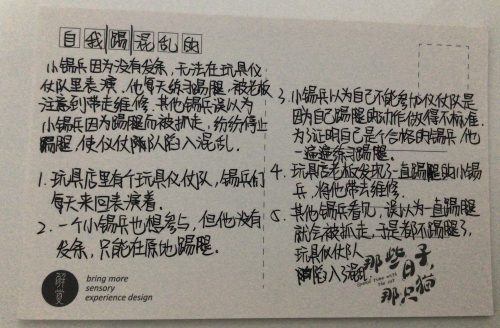 自我踢混乱的
小锡兵因为没有发条，无法在玩具仪
仗队里表演。他每天练习踢腿，被老板
注意到带走维修。其他锡兵误以为
小锡兵因为踢腿而被抓走，纷纷停止
踢腿，使仪仗队陷入混乱。
1. 玩具店里有个玩具仪仗队，锡兵们
每天来回表演着。
2. 一个小锡兵也想参与，但他没有
发条，只能在原地踢腿。
3. 小锡兵以为自己不能参加仪仗队是
因为自己踢腿的动作做得不标准。
为了证明自己是个合格的锡兵，他
一遍遍练习踢腿。
4. 玩具店老板发现了一直踢腿的小锡
兵，将他带去维修。
5. 其他锡兵看见，误以为一直踢腿
就会被抓走，于是都不踢腿了，
玩具仪仗队
陷入混乱
那些日子，
那只猫
bring more
sensory
experience design